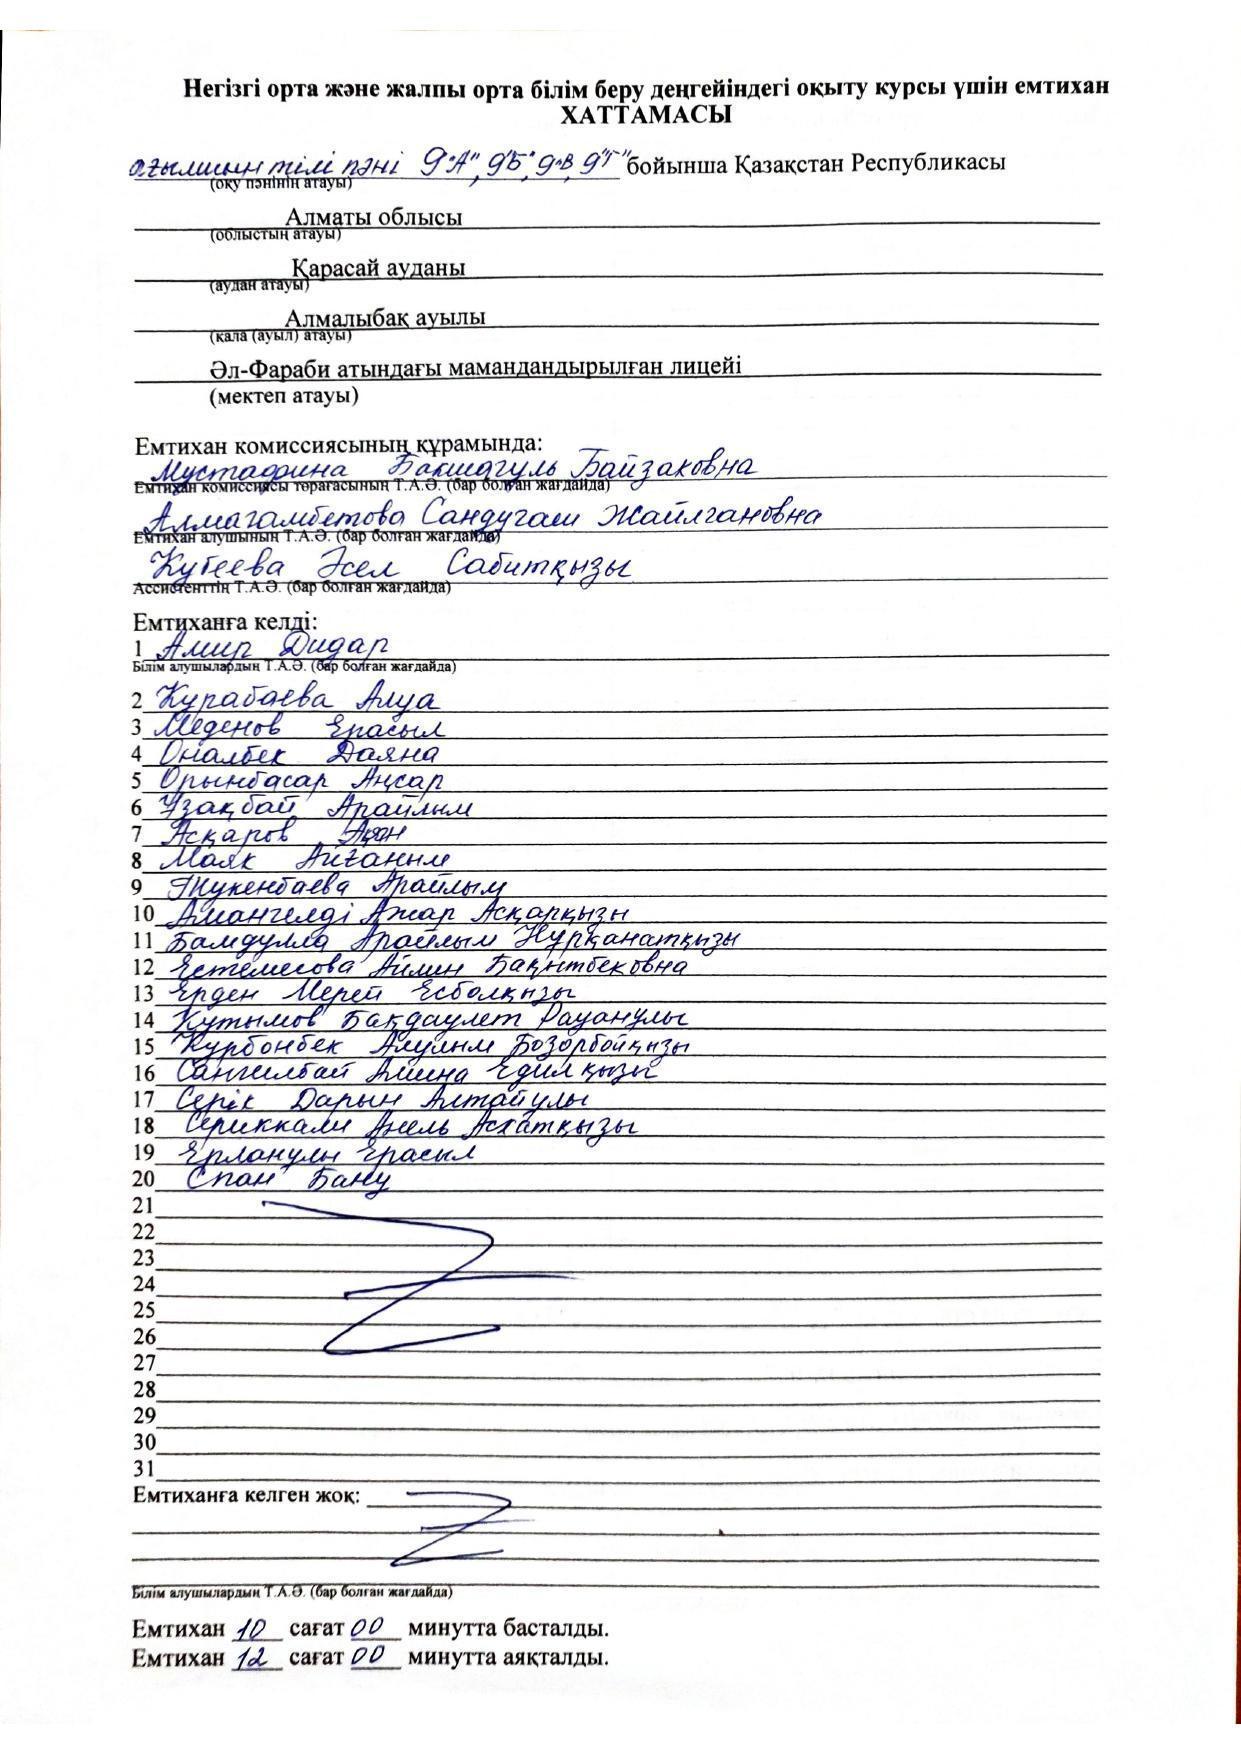 Негізгі орта және жалпы орта білім беру деңгейіндегі оқыту курсы үшін емтихан
ХАТТАМАСЫ
ағылшын тілі пәні 9"А", 9"Б", 9"В, 9"Г" бойынша Қазақстан Республикасы
(оқу пәнінің атауы)
Алматы облысы
(облыстың атауы)
Қарасай ауданы
(аудан атауы)
Алмалыбақ ауылы
(қала (ауыл) атауы)
Әл-Фараби атындағы мамандандырылған лицейі
(мектеп атауы)
Емтихан комиссиясының құрамында:
Мустафина Бакшагуль Байзаковна
Емтихан комиссиясы төрағасының Т.А.Ә. (бар болған жағдайда)
Алмагамбетова Сандугаш Жайлгановна
Емтихан алушының Т.А.Ә. (бар болған жағдайда)
Кубеева Әсел Сабитқызы
Ассистенттің Т.А.Ә. (бар болған жағдайда)
Емтиханға келді:
1 Амир Дидар
Білім алушылардың Т.А.Ә. (бар болған жағдайда)
2 Курабаева Алуа
3 Меденов Ерасыл
4 Оналбек Даяна
5 Орынбасар Аңсар
6 Ұзақбай Арайлым
7 Асқаров
8 Маяк Айғаным
9 Тукенбаева Арайлым
10 Амангелді Ажар Асқарқызы
11 Бамдулла Арайлым Нұрқанатқызы
12 Естемесова Айлин Бақытбековна
13 Ерден Мерей Есболқызы
14 Кутымов Бақдаулет Рауанулы
15 Курбонбек Алулым Бозорбойқизи
16 Сангилбай Амина Едилқызы
17 Серік Дарын Алтайулы
18 Сериккали Анель Асхатқызы
19 Ерланулы Ерасыл
20 Спан Бану
21
22
23
24
25
26
27
28
29
30
31
Емтиханға келген жоқ:
Білім алушылардың Т.А.Ә. (бар болған жағдайда)
Емтихан 10 сағат 00 минутта басталды.
Емтихан 12 сағат 00 минутта аяқталды.